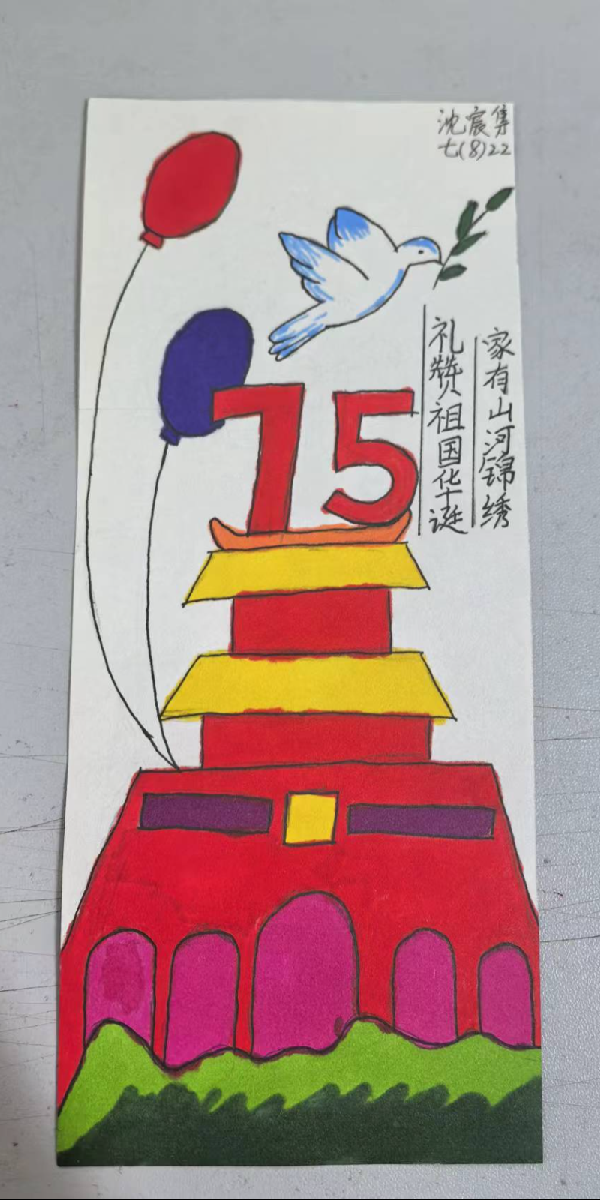 沈宸集
七(8)22
家有山河锦绣
礼赞祖国华诞
75